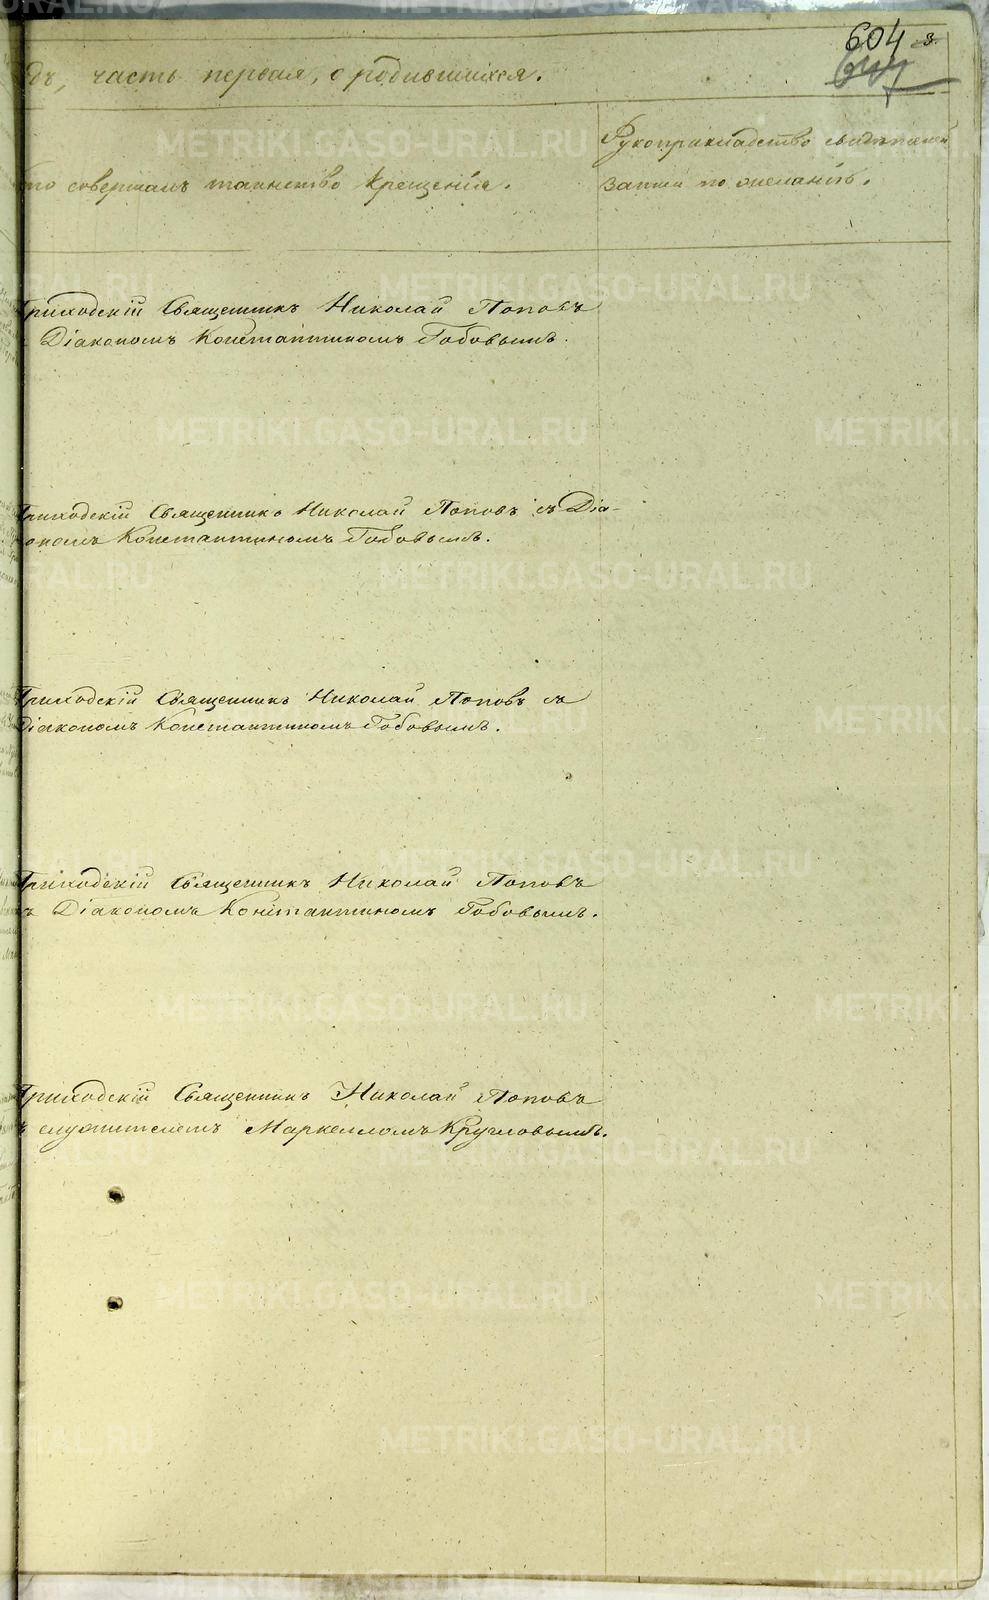 604 3.
дъ, часть первая, о родившихся.
то совершалъ таинство крещенія.
Рукоприкладство свидѣтелей
записи по желанію.
Приходскій Священникъ Николай Поповъ
Діакономъ Константиномъ Бобовымъ.
Приходскій Священникъ Николай Поповъ съ Діа-
кономъ Константиномъ Бобовымъ.
Приходскій Священникъ Николай Поповъ съ
Діакономъ Константиномъ Бобовымъ.
Приходскій Священникъ Николай Поповъ
съ Діакономъ Константиномъ Бобовымъ.
Приходскій Священникъ Николай Поповъ
съ служителемъ Маркелломъ Кругловымъ.
METRIKI.GASO-URAL.RU